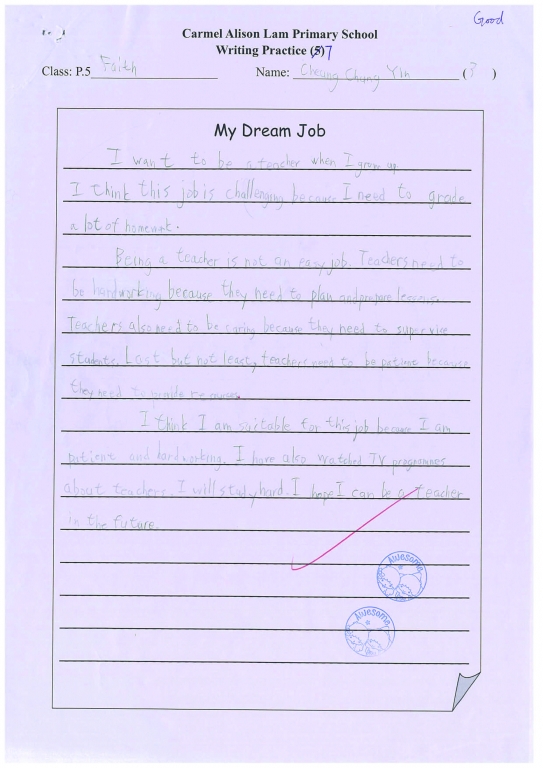 Good
Carmel Alison Lam Primary School
Writing Practice (5)7
Class: P.5 Faith Name: Cheung Chung Yin (3)
My Dream Job
I want to be a teacher when I grow up
I think this job is challenging because I need to grade
a lot of homework.
Being a teacher is not an easy job. Teachers need to
be hardworking because they need to plan and prepare lessons.
Teachers also need to be caring because they need to supervise
students. Last but not least, teachers need to be patient because
they need to provide
I think I am suitable for this job because I am
patient and hardworking. I have also watched TV programmes
about teachers. I will study hard. I hope I can be a teacher
in the future.
Awesome
Awesome